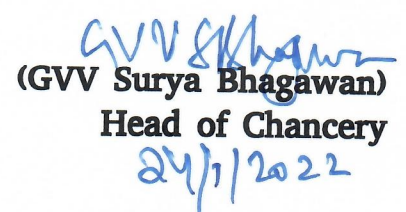 GVV SBhagawan
(GVV Surya Bhagawan)
Head of Chancery
24/1/2022